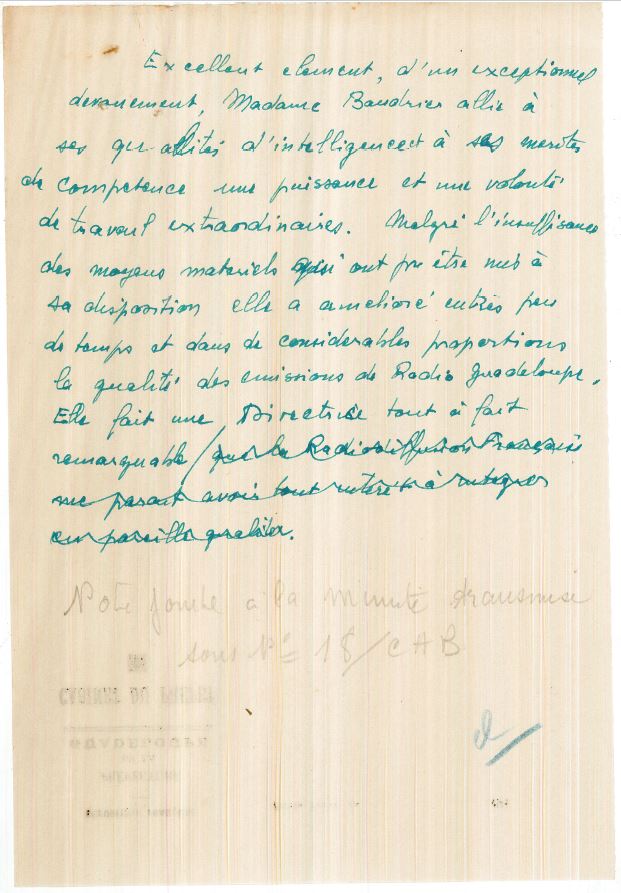 Excellent element, d'un exceptionnel
devouement, Madame Baudrier allie à
ses qualités d'intelligence et à ses merites
de competence une puissance et une volonté
de travail extraordinaires. Malgré l'insuffisance
des moyens materiels qui ont pu être mis à
sa disposition elle a amelioré en très peu
de temps et dans de considerables proportions
la qualité des emissions de Radio Guadeloupe.
Elle fait une Directrice tout à fait
remarquable / que la Radiodiffusion Française
me parait avoir tout interet à integrer
en pareille qualité.
Note jointe à la minute transmise
sous N° 18/CAB
CABINET DU PREFET
GUADELOUPE
DE LA
PREFECTURE